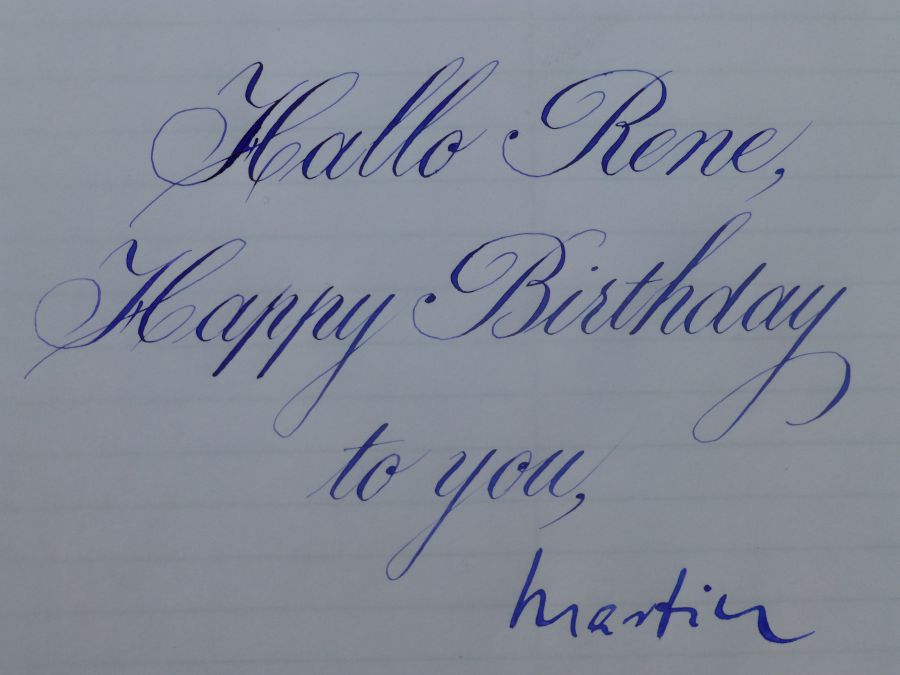 Hallo Rene,
Happy Birthday
to you,
Martin